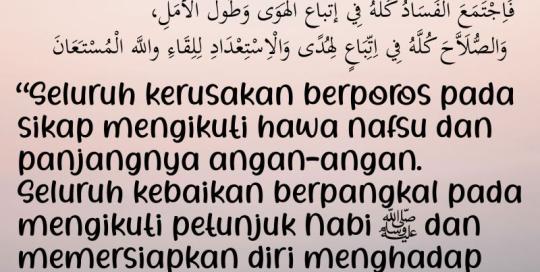 فَاِجْتَمَعَ الْفَسَادُ كُلُّهُ فِي إتباع الْهَوَى وَطُولُ الأَمَلِ،
وَالصُّلَّاحَ كُلَّهُ فِي اِتِّبَاعٍ لِهُدًى وَالِاسْتِعْدَادِ لِلِقَاءِ واللَّه الْمُسْتَعَانَ
“Seluruh kerusakan berporos pada
sikap mengikuti hawa nafsu dan
panjangnya angan-angan.
Seluruh kebaikan berpangkal pada
mengikuti petunjuk Nabi ﷺ dan
memersiapkan diri menghadap